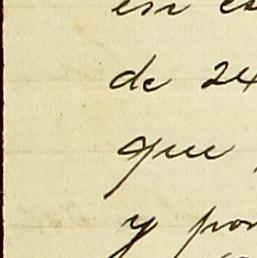 en es
de 24
que
y por